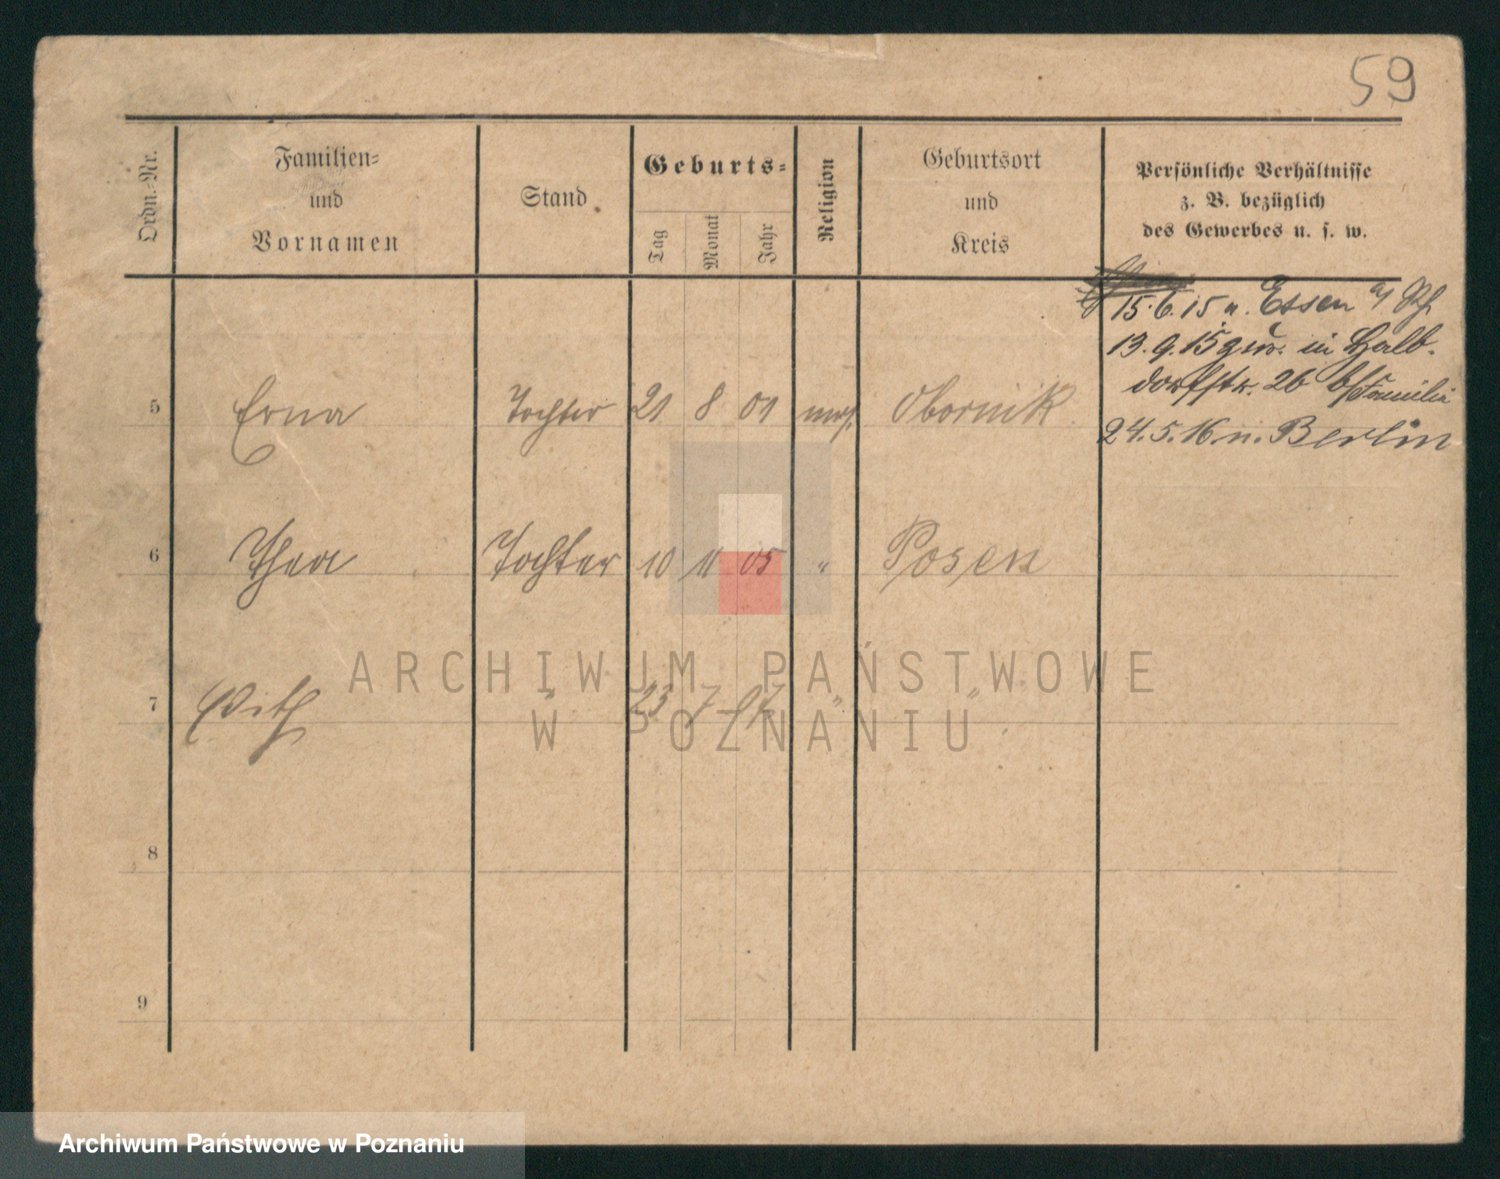 59
Ordn.-Nr.
Familien-
und
Vornamen
Stand
Geburts-
Tag
Monat
Jahr
Religion
Geburtsort
und
Kreis
Persönliche Verhältnisse
z. B. bezüglich
des Gewerbes u. s. w.
15.6.15 n. Essen a/ Rh.
13.9.15 zur. in Halb-
dorfstr. 26 b/ Familie
24.5.16 n. Berlin
5 Erna Tochter 21 8 01 mos. Obornik
6 Thea Tochter 10 11 05 " Posen
7 " 23 7 " "
8
9
ARCHIWUM PAŃSTWOWE
W POZNANIU
Archiwum Państwowe w Poznaniu